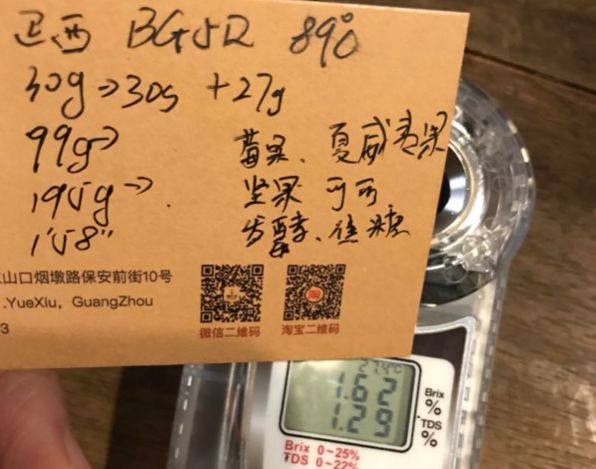 巴西 BG5R 89°
30g→30s +27g
99g→
莓果、夏威夷果
195g→
坚果 可可
1'58"
发酵、焦糖
山口烟墩路保安前街10号
.YueXiu, GuangZhou
3
微信二维码
淘宝二维码
27.4℃
1.62
Brix
%
1.29
TDS
%
Brix 0~25%
TDS 0~22%